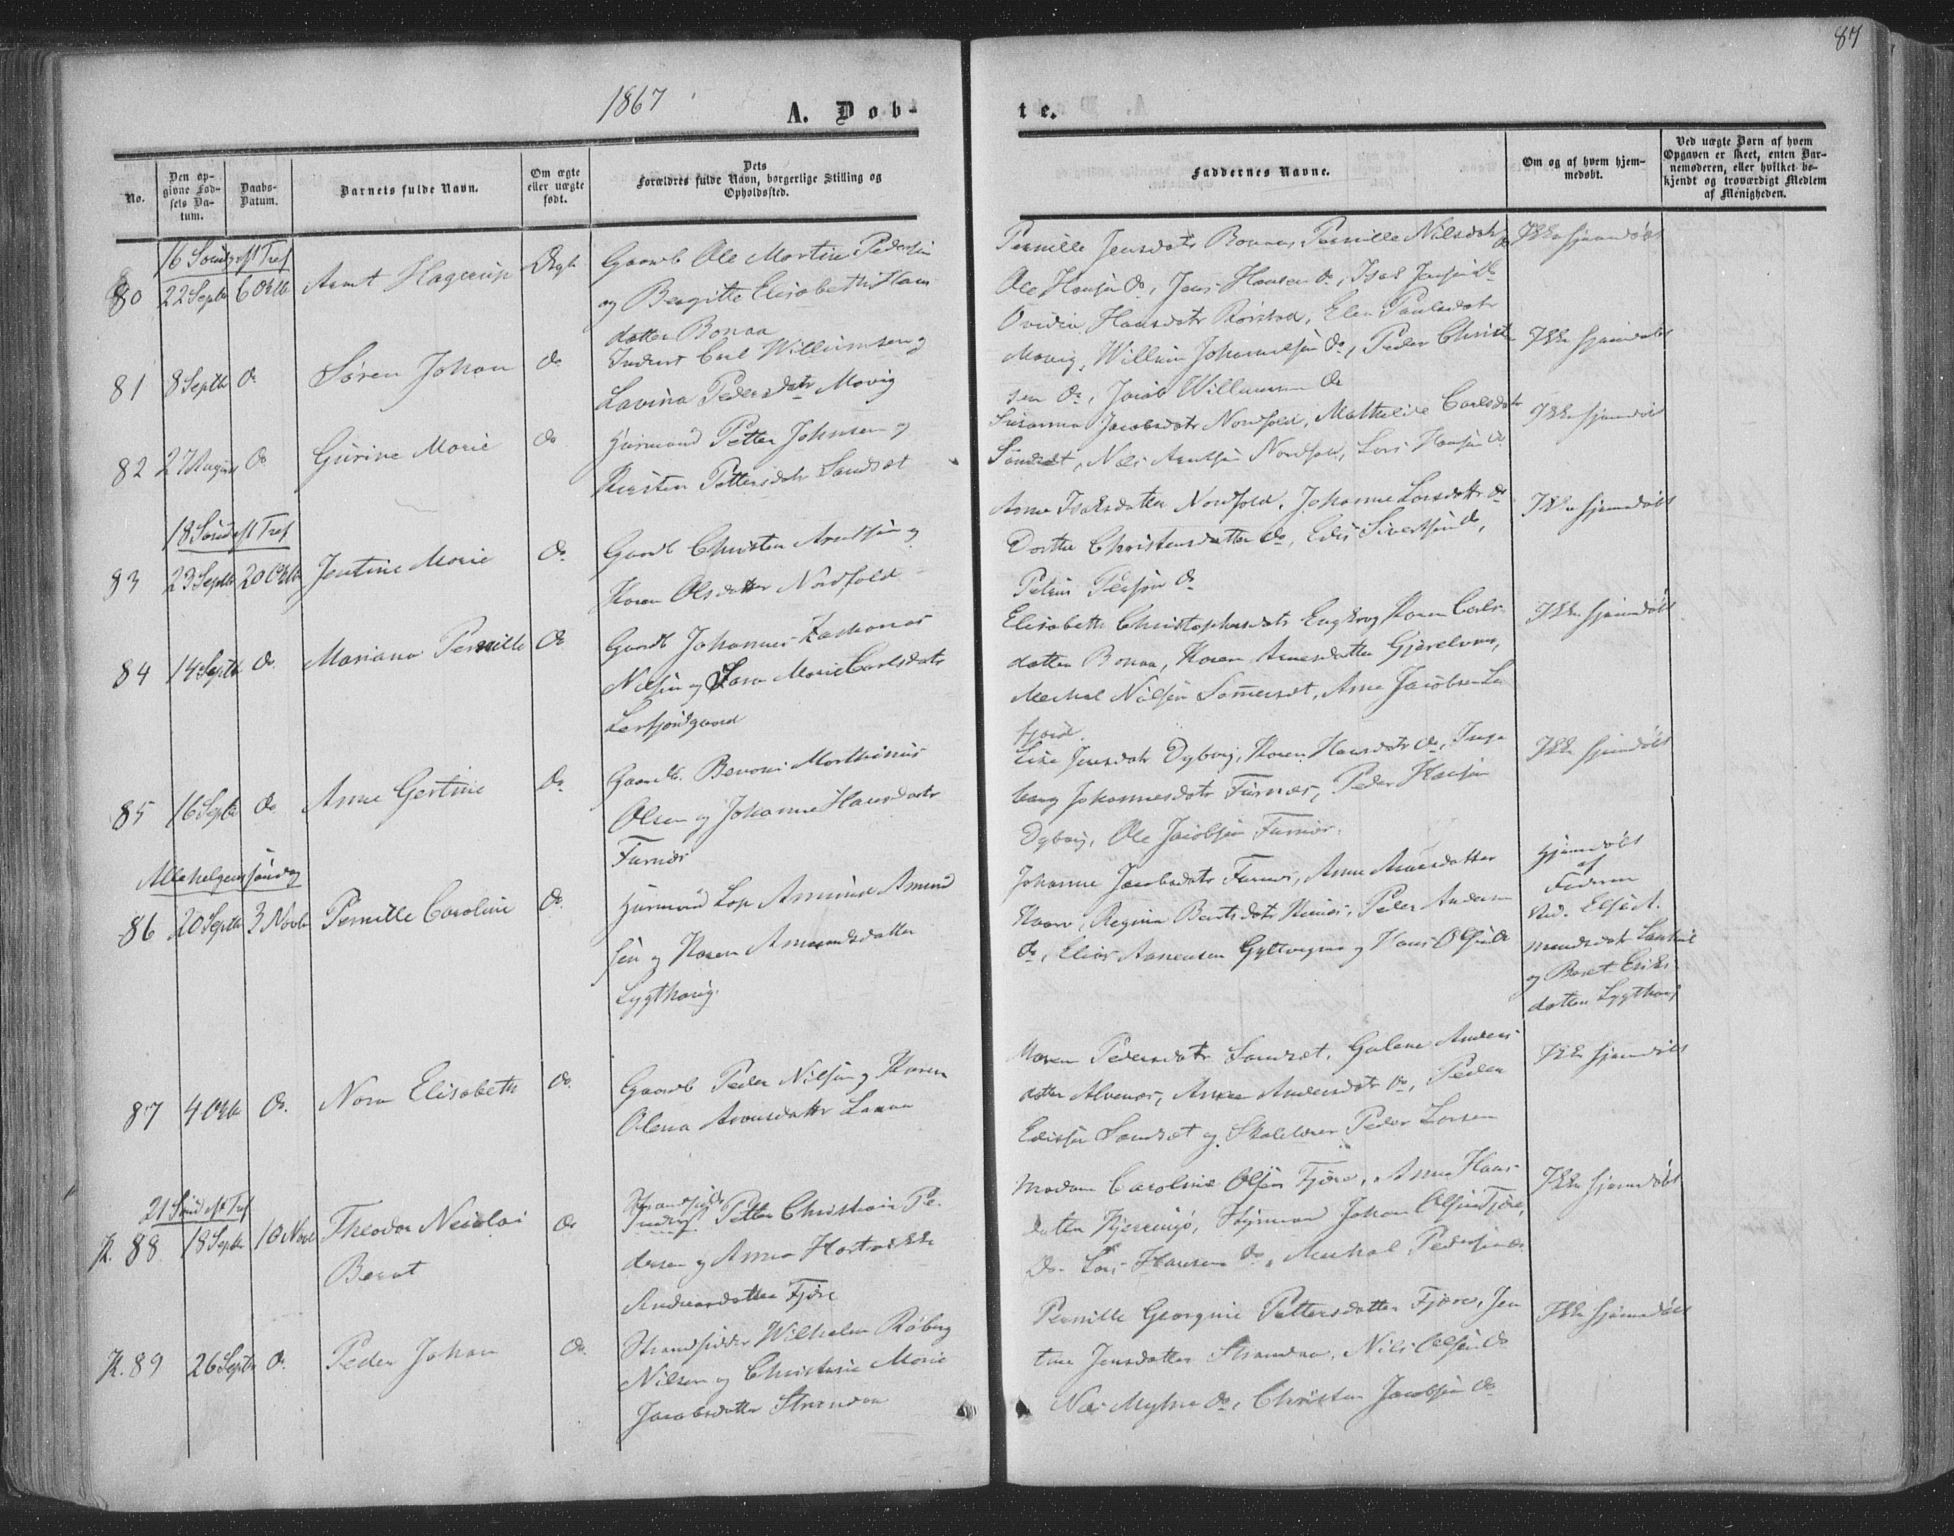 87
1867
A. Döb-
te.
No.
Den op-
givne Föd-
sels Da-
tum.
Daabs-
Datum.
Barnets fulde Navn.
Om ægte
eller uægte
født.
Dets
Forældres fulde Navn, borgerlige Stilling og
Opholdssted.
Faddernes Navne.
Om og af hvem hjem-
medøbt.
Ved uægte Børn af hvem
Opgaven er skeet, enten Bar-
nemoderen, eller hvilket be-
kjendt og troværdigt Medlem
af Menigheden.
16 Sönd eft Tref
80 22 Septb 6 Octb Arnt Hagerup Ægte
Gaardb Ole Martin Pedersen
og Bergitte Elisabeth Hans
datter Bonaa
Pernille Jensdatr Bonaa, Pernille Nilsdatr
Ole Hansen do, Jens Hansen do, Isak Jensen do
Ikke hjemdøbt
81 8 Septb do Søren Johan do
Inderst Carl Williumsen og
Lavina Pedersdatr Movig
Ovidia Hansdatr Rörstad, Elen Paulsdatr
Movig, Willum Johannesen do, Peder Christ
sen do, Jacob Willumsen do
Ikke hjemdøbt
82 27 August do Gurine Marie do
Huusmand Petter Johnsen og
Kirsten Pettersdatr Sandset
Susanna Jacobsdatr Nordfold, Mathilde Carlsdatr
Sandset, Nils Arntsen Nordfold, Lars Hansen do
Ikke hjemdøbt
18 Sönd eft Tref
83 23 Septb 20 Octb Jentine Marie do
Gaardb Christen Arntsen og
Karen Olsdatter Nordfold
Anne Isaksdatter Nordfold, Johanne Larsdatr do
Dorthe Christensdatter do, Edis Sivertsen do,
Petrus do
Ikke hjemdøbt
84 14 Septb do Mariana Pernille do
Gaardb Johannes Zacharias
Nilsen og Sara Marie Carlsdatr
Leirfjordgaard
Elisabeth Christophersdatr Engkrog Karen Carls
datter Bonaa, Karen Arnesdatter Gjerelvnes,
Mechal Nilsen Somerset, Arne Jacobsen Le
fjord.
Ikke hjemdøbt
85 16 Septb do Anne Gertine do
Gaardb. Benoni Marthinus
Olsen og Johanna Hansdatr
Furnæs
Lise Jensdatr Dybvig, Karen Hansdatr do, Inge
borg Johannesdatr Furnæs, Peder Hansen
Dybvig, Ole Jacobsen Furnæs.
Ikke hjemdøbt
Allehelgens søndag
86 20 Septb 3 Novb Pernille Caroline do
Huusmand Lap Amund Amund
sen og Karen Amundsdatter
Lygthaug.
Johanne Jacobsdatr Furnes, Anne Arnesdatter
Regina Peder Andersen
do, Elias og Hans Olsen do
Hjemdøbt
af
Faderen
Vid. Else A
mundsdatr
og Beret Eriks
datter Lygthaug
87 4 Octb do. Nora Elisabeth do.
Gaardb Peder Nilsen og Karen
Olena
Maren Pedersdatr Sandset, Galene Anders
datter Alvenes, Anne Andersdatr do, Peder
Edissen Sandset og Skolelærer Peder Larsen
Ikke hjemdøbt
21 Sönd eft Tref
K. 88 18 Septb 10 Novb Theodor Nicolai
Bernt do
Strandsidder
Inderst Petter Christian Pe
dersen og Anna Hartvikke
Andreasdatter Fjære
Madam Caroline Olsen Fjære, Anne Hans
datter Kjerringø, Styrmand Johan Olsen Fjære,
do. Lars Hansen do, Mechal Pedersen do
Ikke hjemdøbt
K. 89 26 Septb do. Peder Johan do.
Strandsidder Wilhelm Röberg
Nilsen og Christine Marie
Jacobsdatter Strandaa
Pernille Georgine Pettersdatter Fjære, Jen
tine Jensdatter Strandaa, Nils Olsen do
Nils do, Christen Jacobsen do
Ikke hjemdøbt